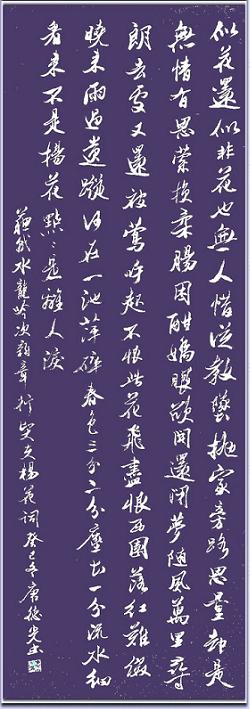 似花還似非花也無人惜從教墜抛家旁路思量却是
無情有思縈損柔腸困酣嬌眼欲開還閉夢隨風萬里尋
郎去處又還被鶯呼起不恨此花飛盡恨西園落紅難綴
曉來雨過遺蹤何在一池萍碎春色三分二分塵土一分流水細
看來不是楊花點〻是離人淚
蘇軾水龍吟次韻章質夫楊花詞癸巳冬唐光書